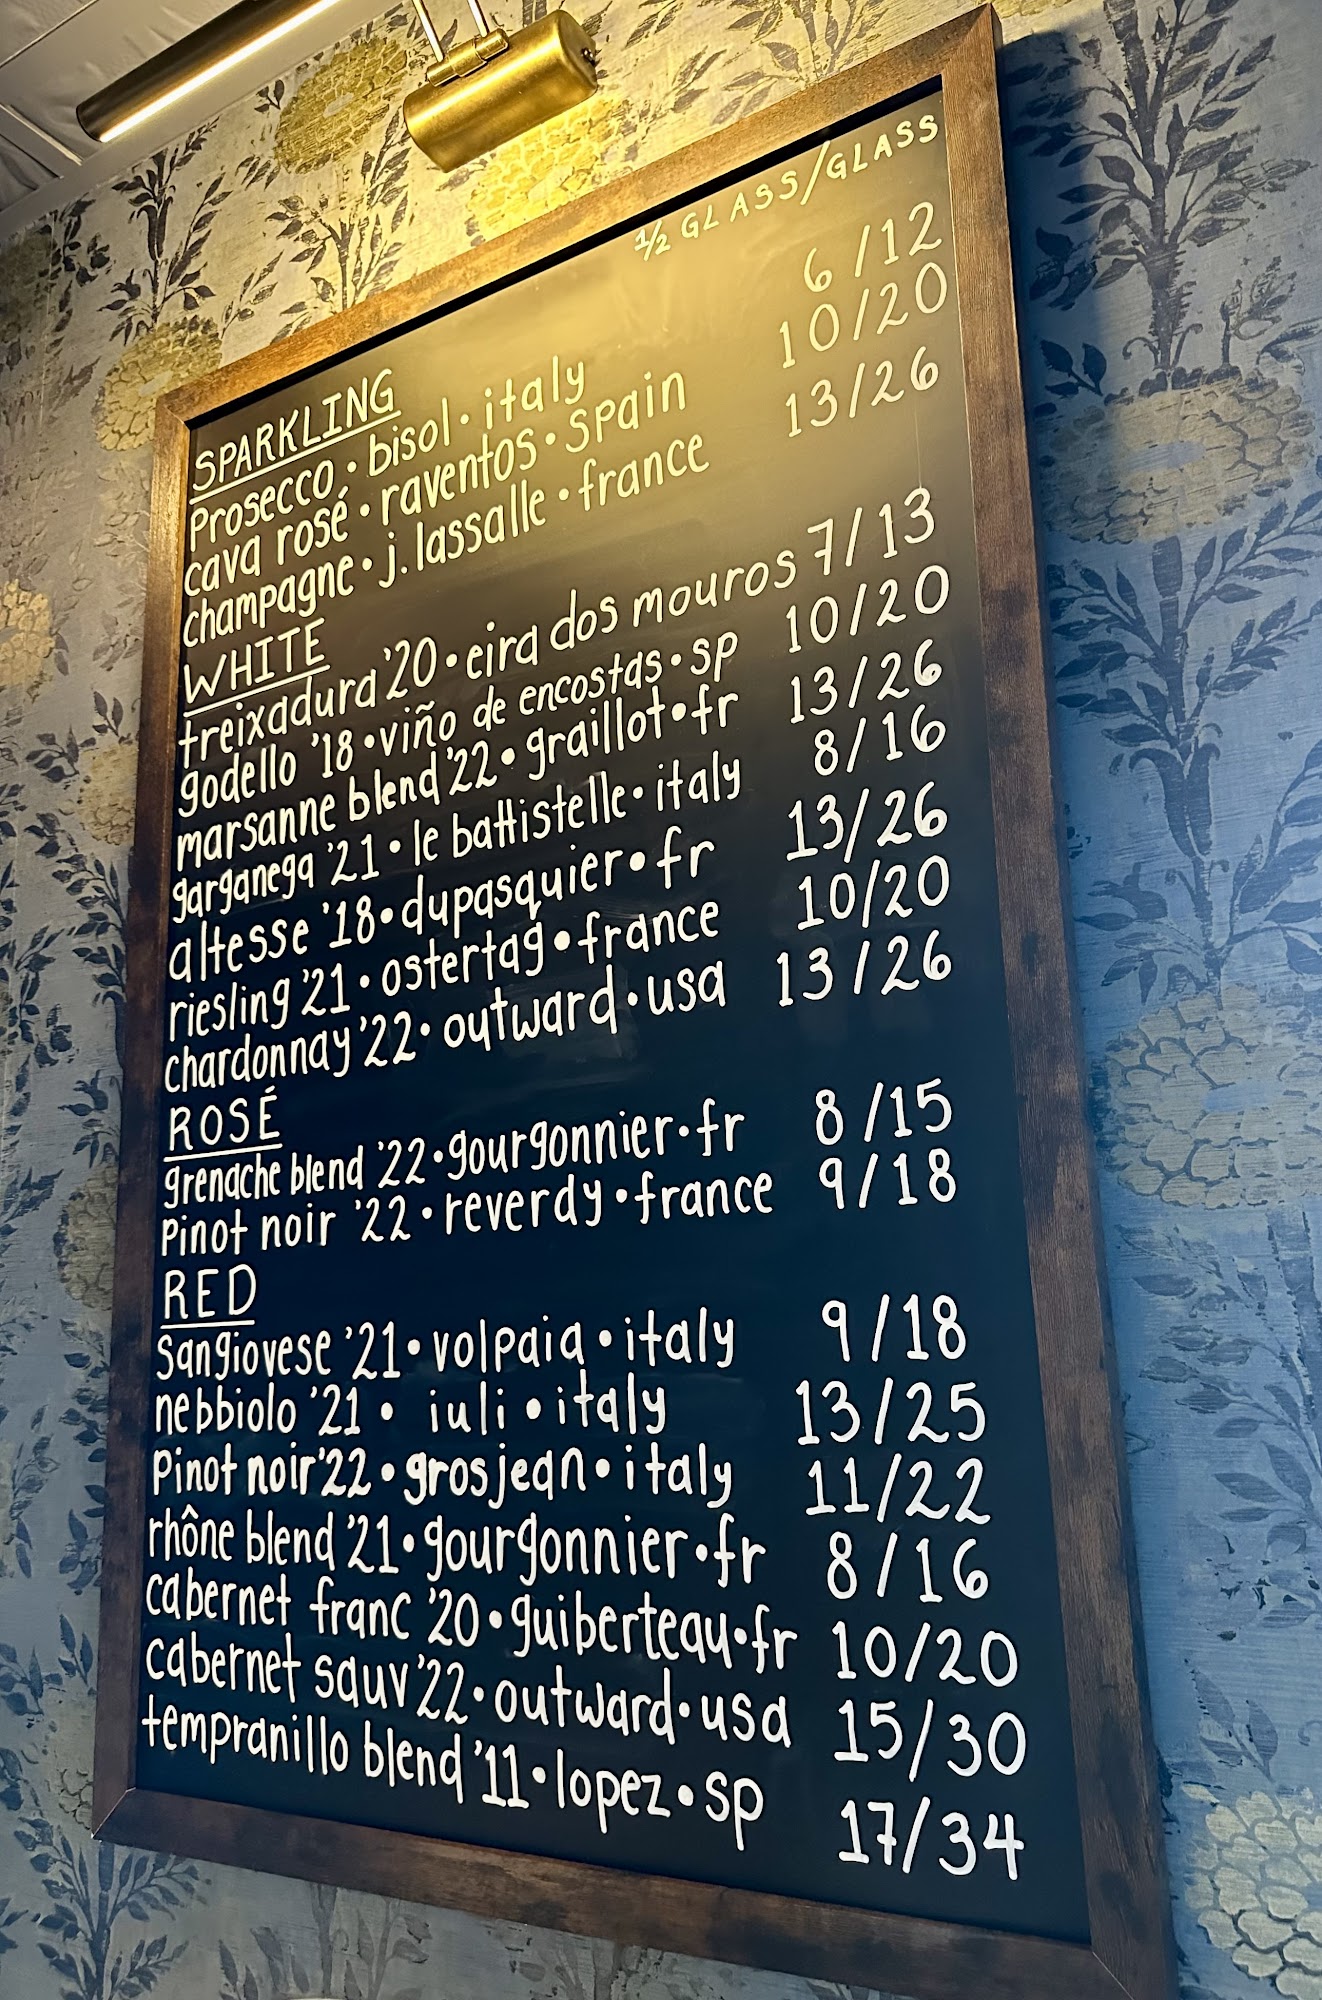 ½ GLASS/GLASS
SPARKLING
Prosecco • bisol • italy 6/12
cava rosé • raventos • spain 10/20
champagne • j. lassalle • france 13/26
WHITE
treixadura '20 • eira dos mouros 7/13
godello '18 • viño de encostas • sp 10/20
marsanne blend '22 • graillot • fr 13/26
garganega '21 • le battistelle • italy 8/16
altesse '18 • dupasquier • fr 13/26
riesling '21 • ostertag • france 10/20
chardonnay '22 • outward • usa 13/26
ROSÉ
grenache blend '22 • gourgonnier • fr 8/15
Pinot noir '22 • reverdy • france 9/18
RED
Sangiovese '21 • volpaia • italy 9/18
nebbiolo '21 • iuli • italy 13/25
Pinot noir '22 • grosjean • italy 11/22
rhône blend '21 • gourgonnier • fr 8/16
cabernet franc '20 • guiberteau • fr 10/20
cabernet sauv '22 • outward • usa 15/30
tempranillo blend '11 • lopez • sp 17/34